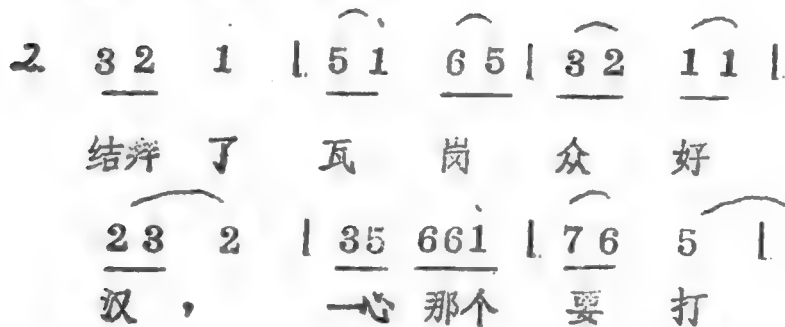 2 3 2 1̇ | 5 1̇ 6 5 | 3 2 1 1 |
结拜了瓦岗众好
2 3 2 | 3 5 6 6 1̇ | 7 6 5 |
汉，一心那个要打